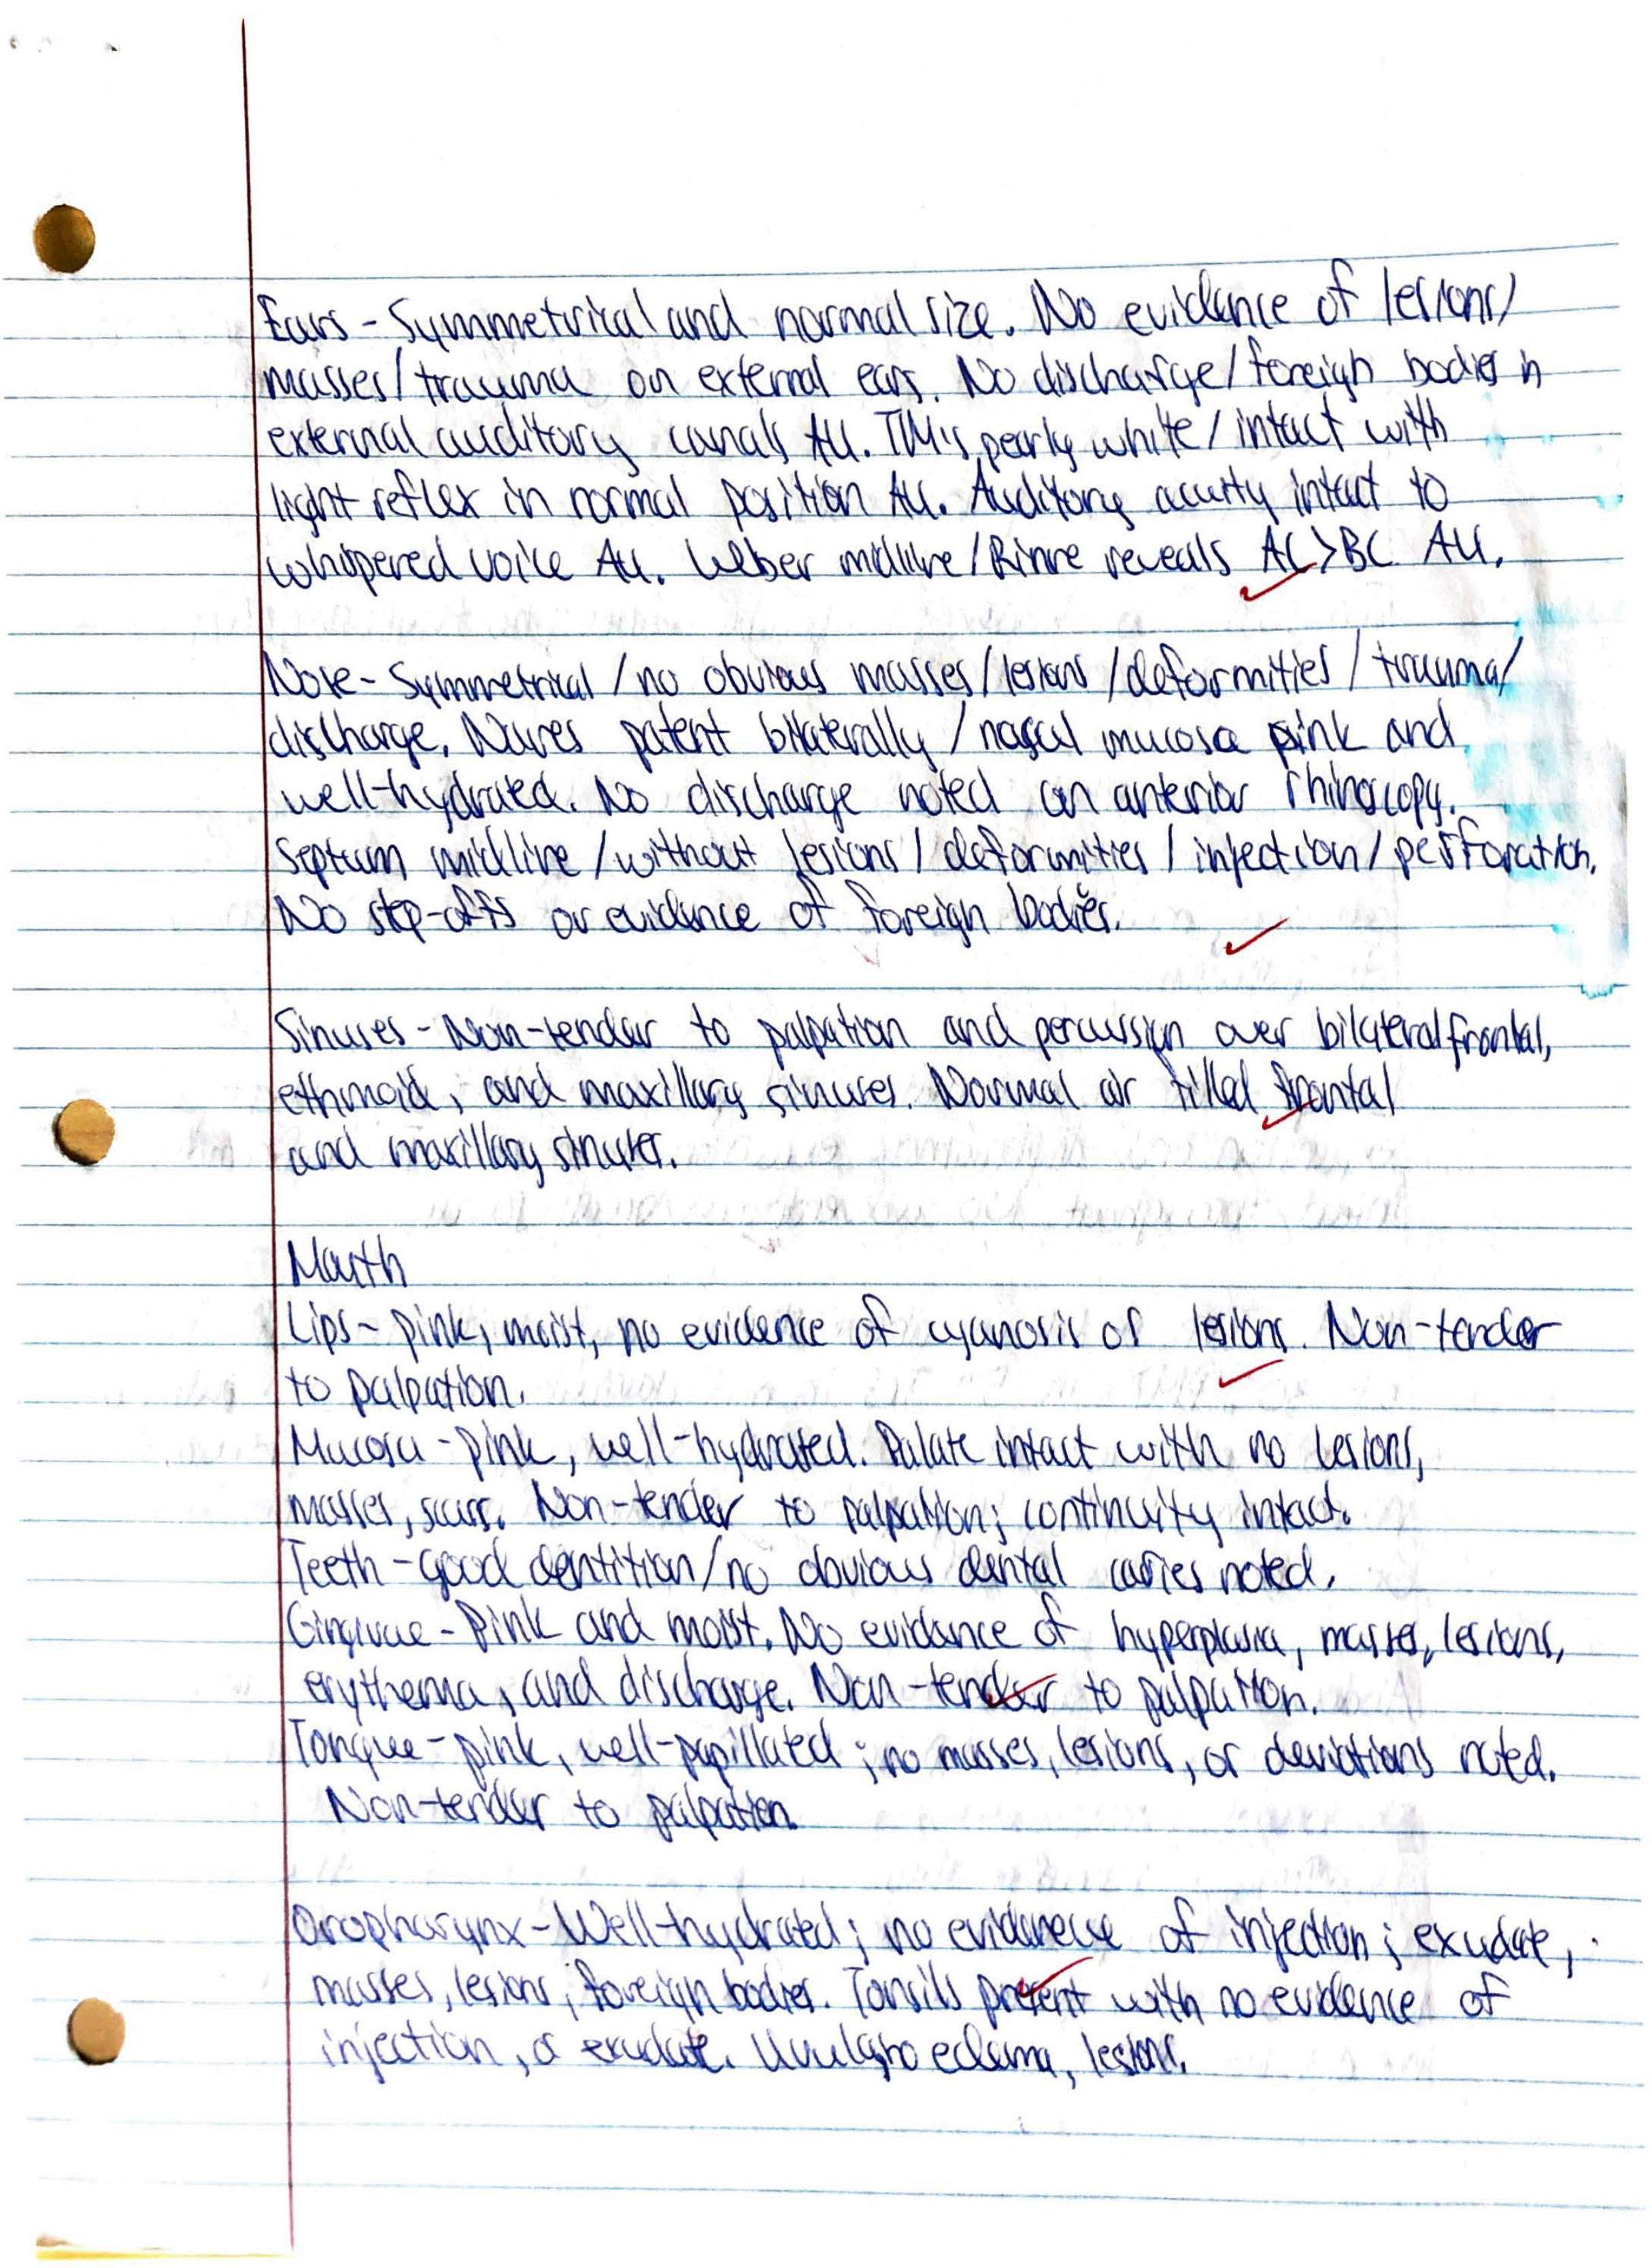 Ears - Symmetrical and normal size. No evidence of lesions/
masses/trauma on external ears. No discharge/foreign bodies in
external auditory canals AU. TM's pearly white/intact with
light reflex in normal position AU. Auditory acuity intact to
whispered voice AU. Weber midline/Rinne reveals AC>BC AU.
Nose - Symmetrical/no obvious masses/lesions/deformities/trauma/
discharge. Nares patent bilaterally/nasal mucosa pink and
well-hydrated. No discharge noted on anterior rhinoscopy.
Septum midline/without lesions/deformities/injection/perforation.
No step-offs or evidence of foreign bodies.
Sinuses - Non-tender to palpation and percussion over bilateral frontal,
ethmoid, and maxillary sinuses. Normal air filled frontal
and maxillary sinuses.
Mouth
Lips - pink, moist, no evidence of cyanosis or lesions. Non-tender
to palpation.
Mucosa - pink, well-hydrated. Palate intact with no lesions,
masses, scars. Non-tender to palpation; continuity intact.
Teeth - good dentition/no obvious dental caries noted.
Gingivae - Pink and moist. No evidence of hyperplasia, masses, lesions,
erythema, and discharge. Non-tender to palpation.
Tongue - pink, well-papillated; no masses, lesions, or deviations noted.
Non-tender to palpation.
Oropharynx - Well-hydrated; no evidence of injection; exudate,
masses, lesions, foreign bodies. Tonsils present with no evidence of
injection, or exudate. Uvula no edema, lesions.